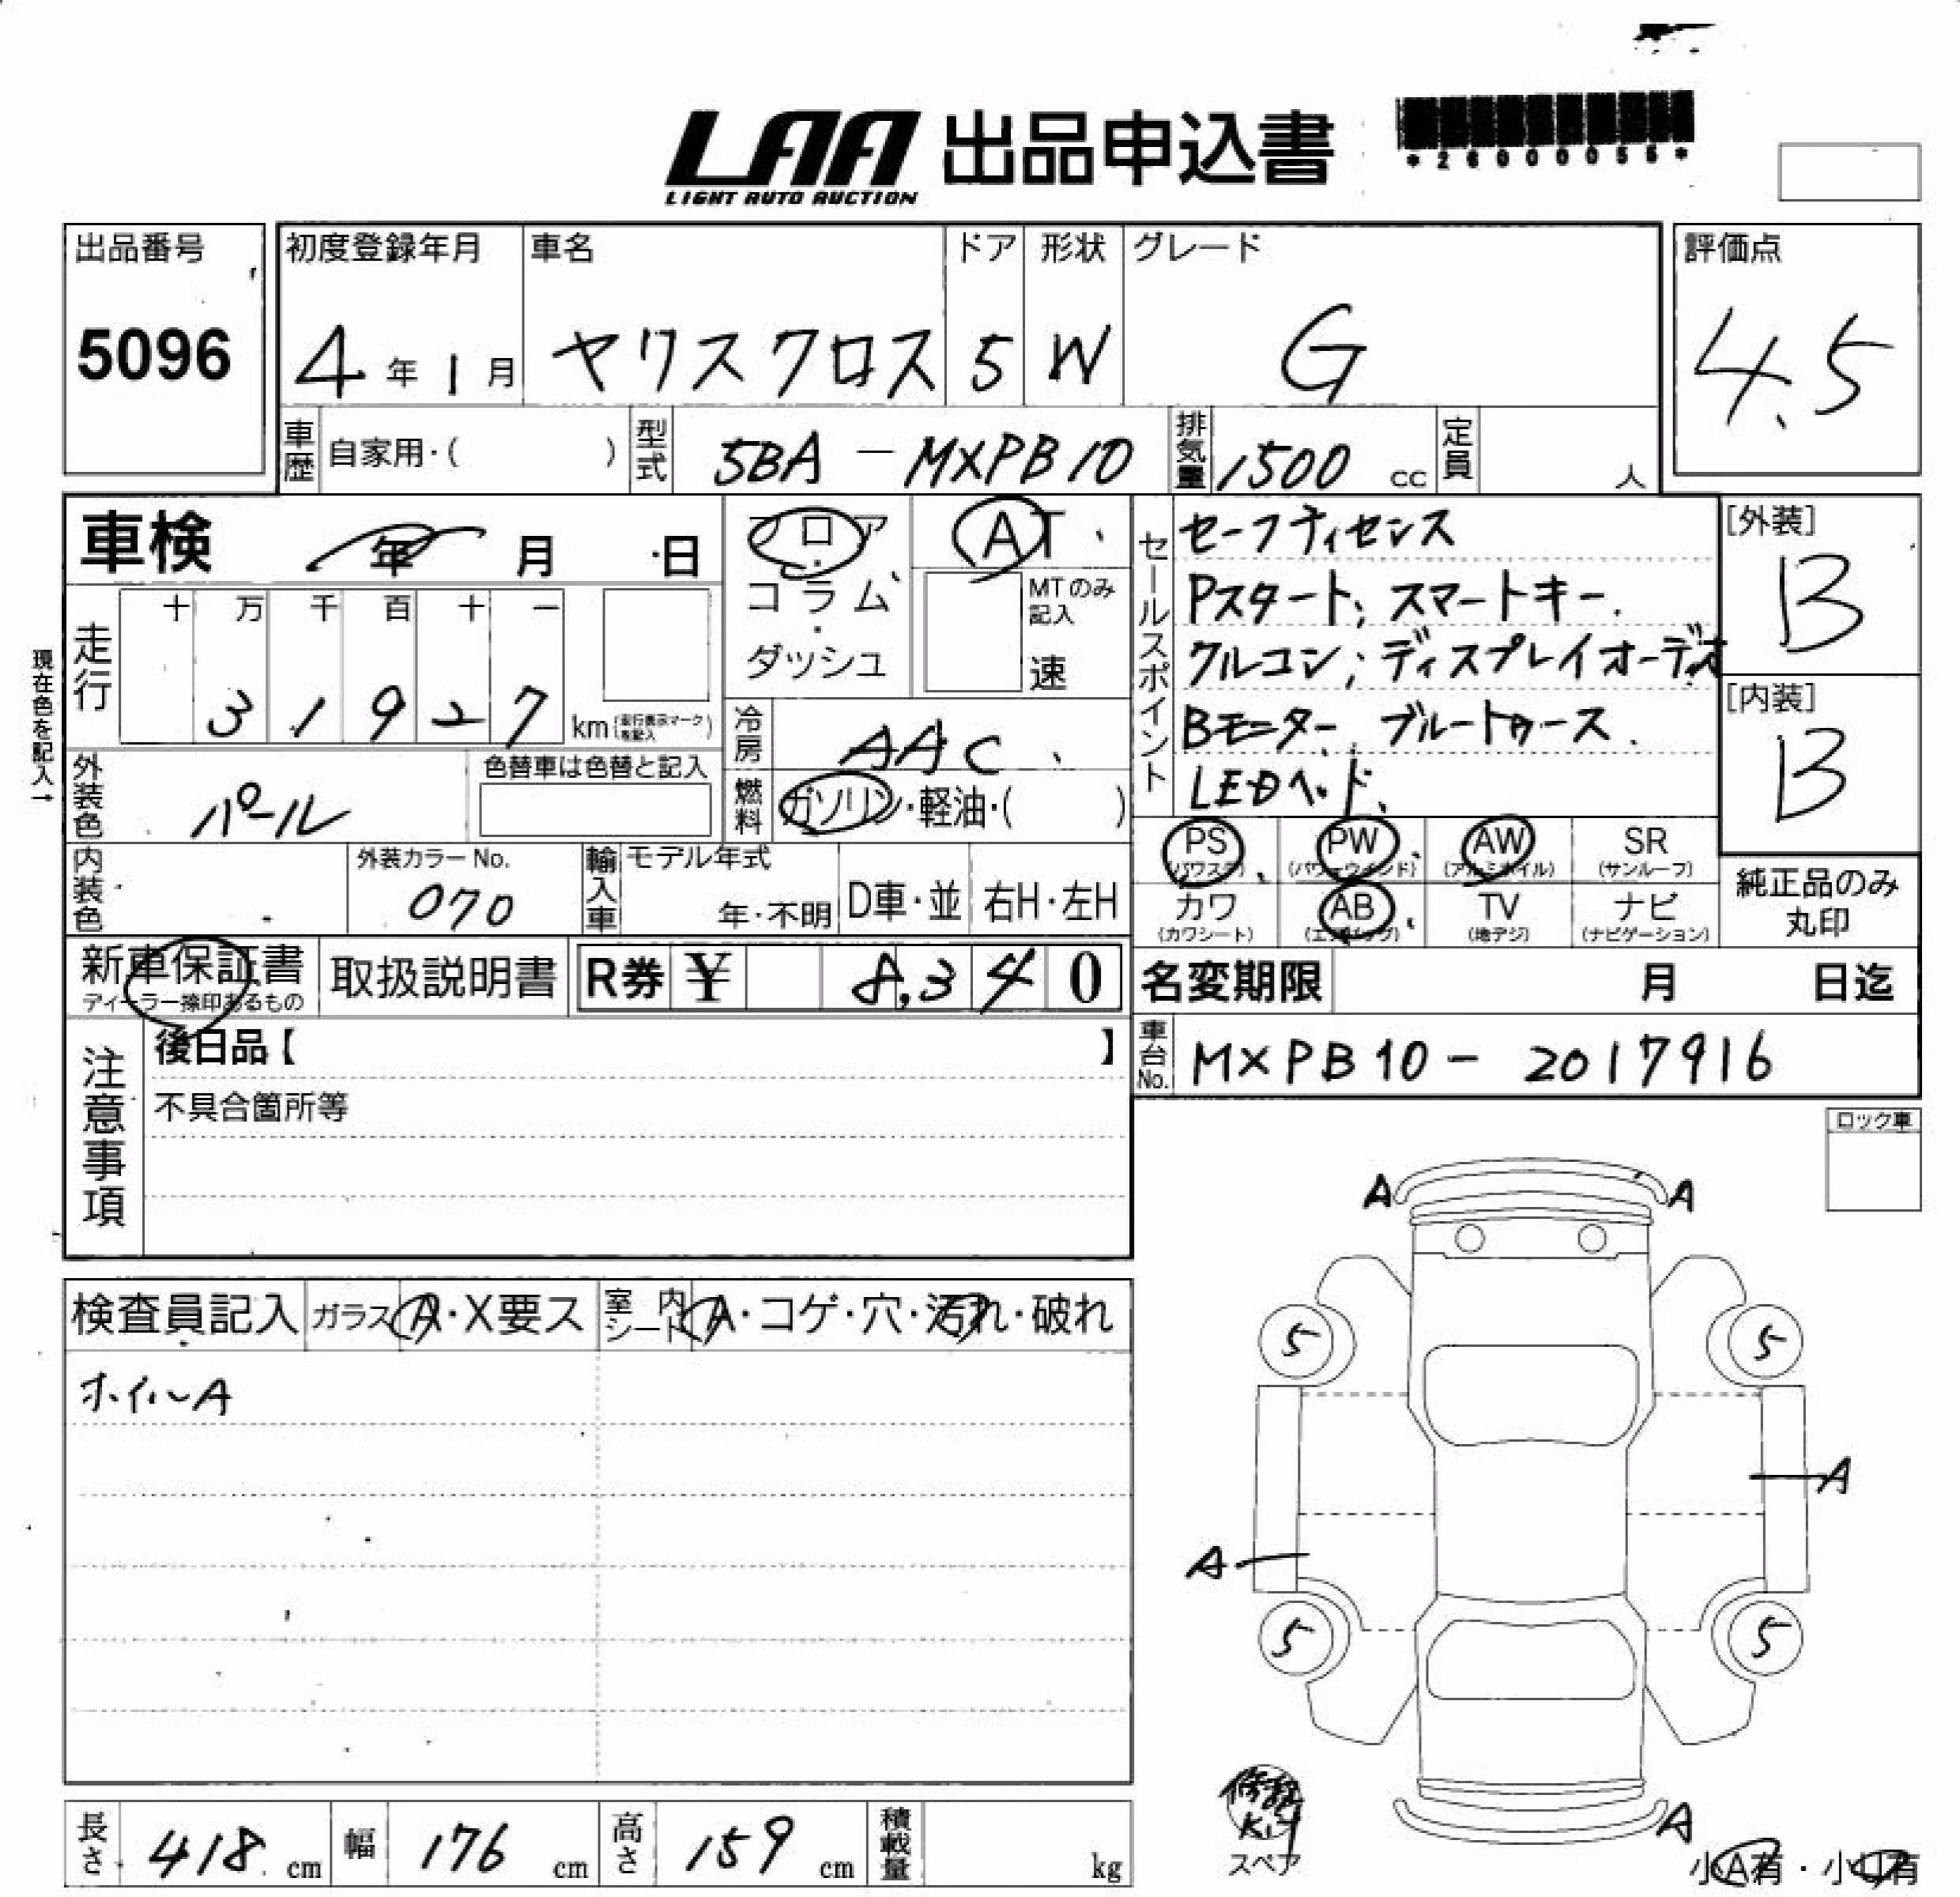 LAA 出品申込書
LIGHT AUTO AUCTION
*26000055*
出品番号
5096
初度登録年月
4年1月
車名
ヤリスクロス
ドア
5
形状
W
グレード
G
評価点
4.5
車歴 自家用・( )
型式 5BA-MXPB10
排気量 1500 cc
定員 人
車検 年 月 日
フロア・コラム・ダッシュ
AT
MTのみ記入
速
現在色を記入→
走行
十 万 千 百 十 一
3 1 9 2 7 km
(走行表示マークを記入)
冷房 AAC
燃料 ガソリン・軽油・( )
外装色 パール
色替車は色替と記入
内装色
外装カラーNo.
070
輸入車
モデル年式
年・不明
D車・並
右H・左H
セールスポイント
セーフティセンス
Pスタート、スマートキー.
クルコン、ディスプレイオーディオ
Bモニター、ブルートゥース.
LEDヘッド、
[外装]
B
[内装]
B
PS (パワステ)
PW (パワーウインド)
AW (アルミホイル)
SR (サンルーフ)
カワ (カワシート)
AB (エアバッグ)
TV (地デジ)
ナビ (ナビゲーション)
純正品のみ
丸印
新車保証書
ディーラー捺印あるもの
取扱説明書
R券 ¥ 8,340
名変期限 月 日迄
車台No. MXPB10-2017916
注意事項
後日品【 】
不具合箇所等
ロック車
検査員記入
ガラス A・X要ス
室内シート A・コゲ・穴・汚れ・破れ
ホイルA
A A
5 5
A
A
5 5
A
修理
Kit
スペア
小A有・小U有
長さ 418 cm
幅 176 cm
高さ 159 cm
積載量 kg